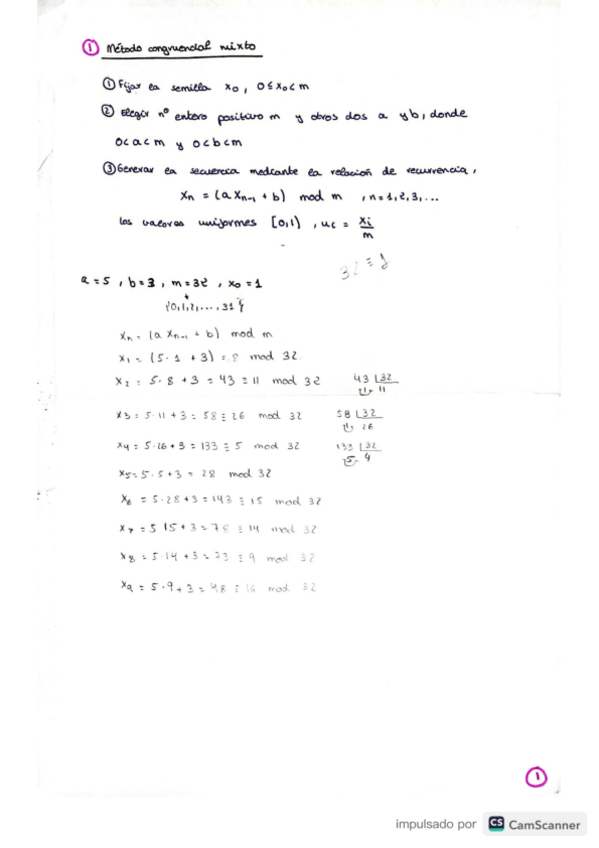 ① Método congruencial mixto
① Fijar la semilla x₀, 0 ≤ x₀ < m
② Elegir nº entero positivo m y otros dos a y b, donde
0 < a < m y 0 < b < m
③ Generar la secuencia mediante la relación de recurrencia,
xₙ = (a xₙ₋₁ + b) mod m , n = 1, 2, 3, ...
los valores uniformes [0,1) , uᵢ = xᵢ/m
32 ≡
a = 5 , b = 3 , m = 32 , x₀ = 1
{0,1,2,..., 31}
xₙ = (a xₙ₋₁ + b) mod m
x₁ = (5·1 + 3) = 8 mod 32
x₂ = 5·8 + 3 = 43 ≡ 11 mod 32 43 |32
11
x₃ = 5·11 + 3 = 58 ≡ 26 mod 32 58 |32
26
x₄ = 5·26 + 3 = 133 ≡ 5 mod 32 133 |32
5 4
x₅ = 5·5 + 3 = 28 mod 32
x₆ = 5·28 + 3 = 143 ≡ 15 mod 32
x₇ = 5 15 + 3 = 78 ≡ 14 mod 32
x₈ = 5·14 + 3 = 73 ≡ 9 mod 32
x₉ = 5·9 + 3 = 48 ≡ 16 mod 32
①
impulsado por CS CamScanner